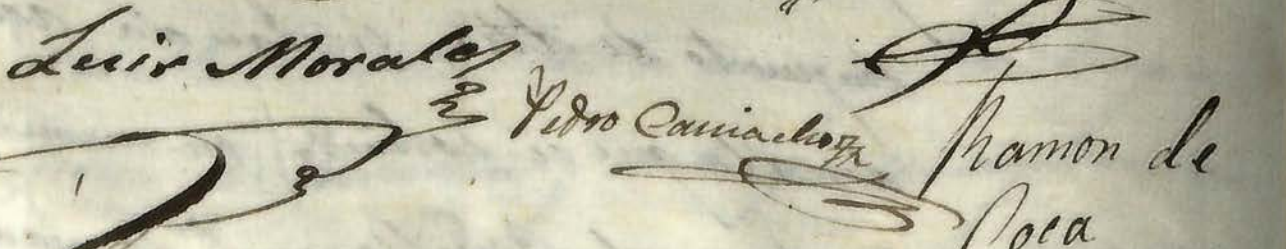 Luis Morales
Pedro Camacho
Ramon de
Coca